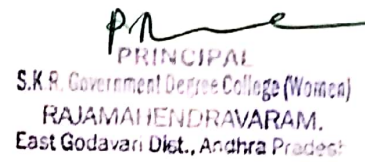 PRINCIPAL
S.K R. Government Degree College (Women)
RAJAMAHENDRAVARAM.
East Godavari Dist., Andhra Pradesh